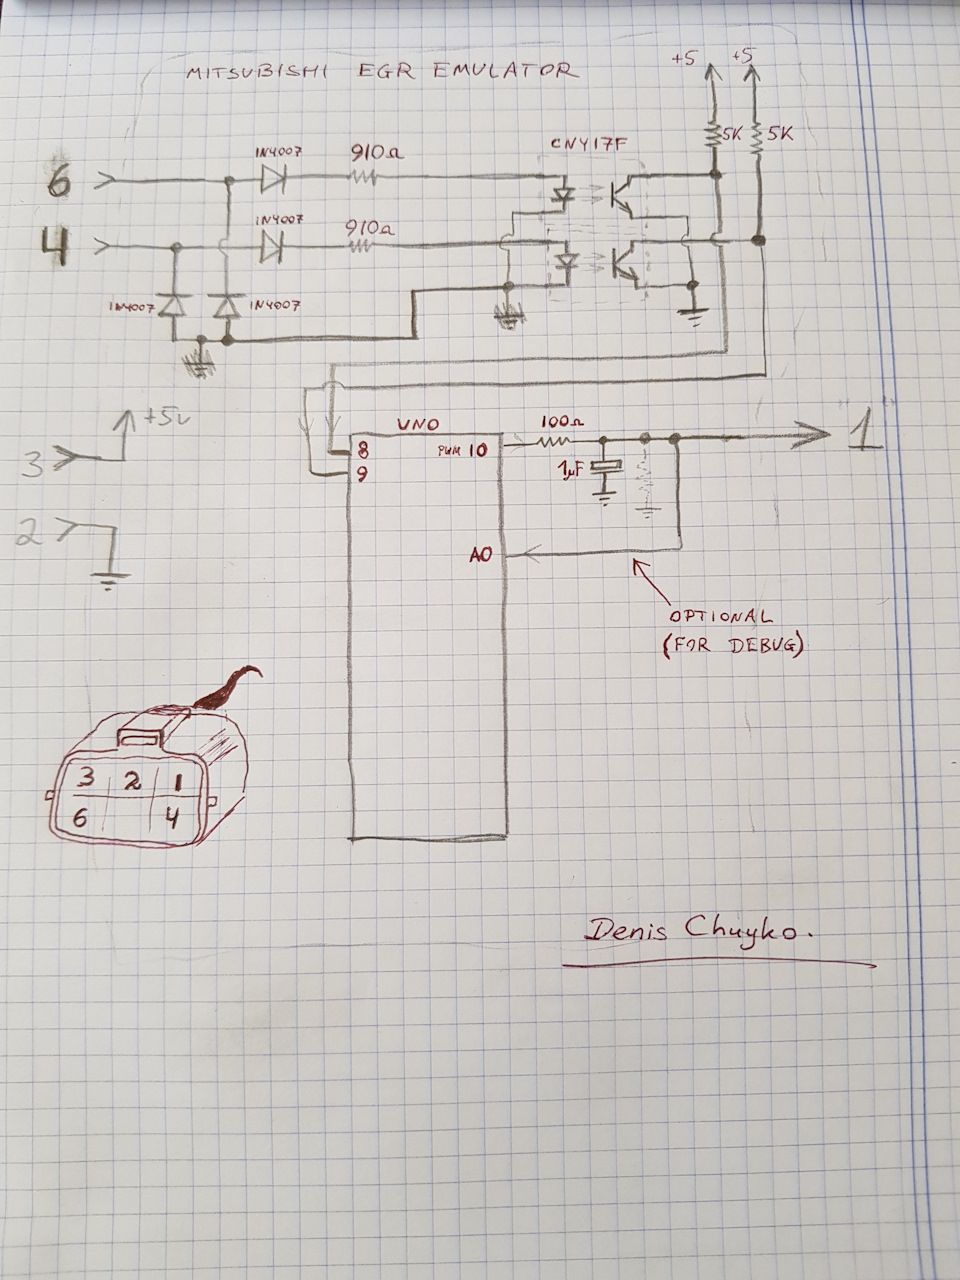 MITSUBISHI EGR EMULATOR
+5 +5
5K 5K
CNY17F
6
1N4007
910Ω
4
1N4007
910Ω
1N4007
1N4007
+5v
3
2
UNO
8
9
PWM 10
A0
100Ω
1µF
1
OPTIONAL
(FOR DEBUG)
3 2 1
6 4
Denis Chuyko.